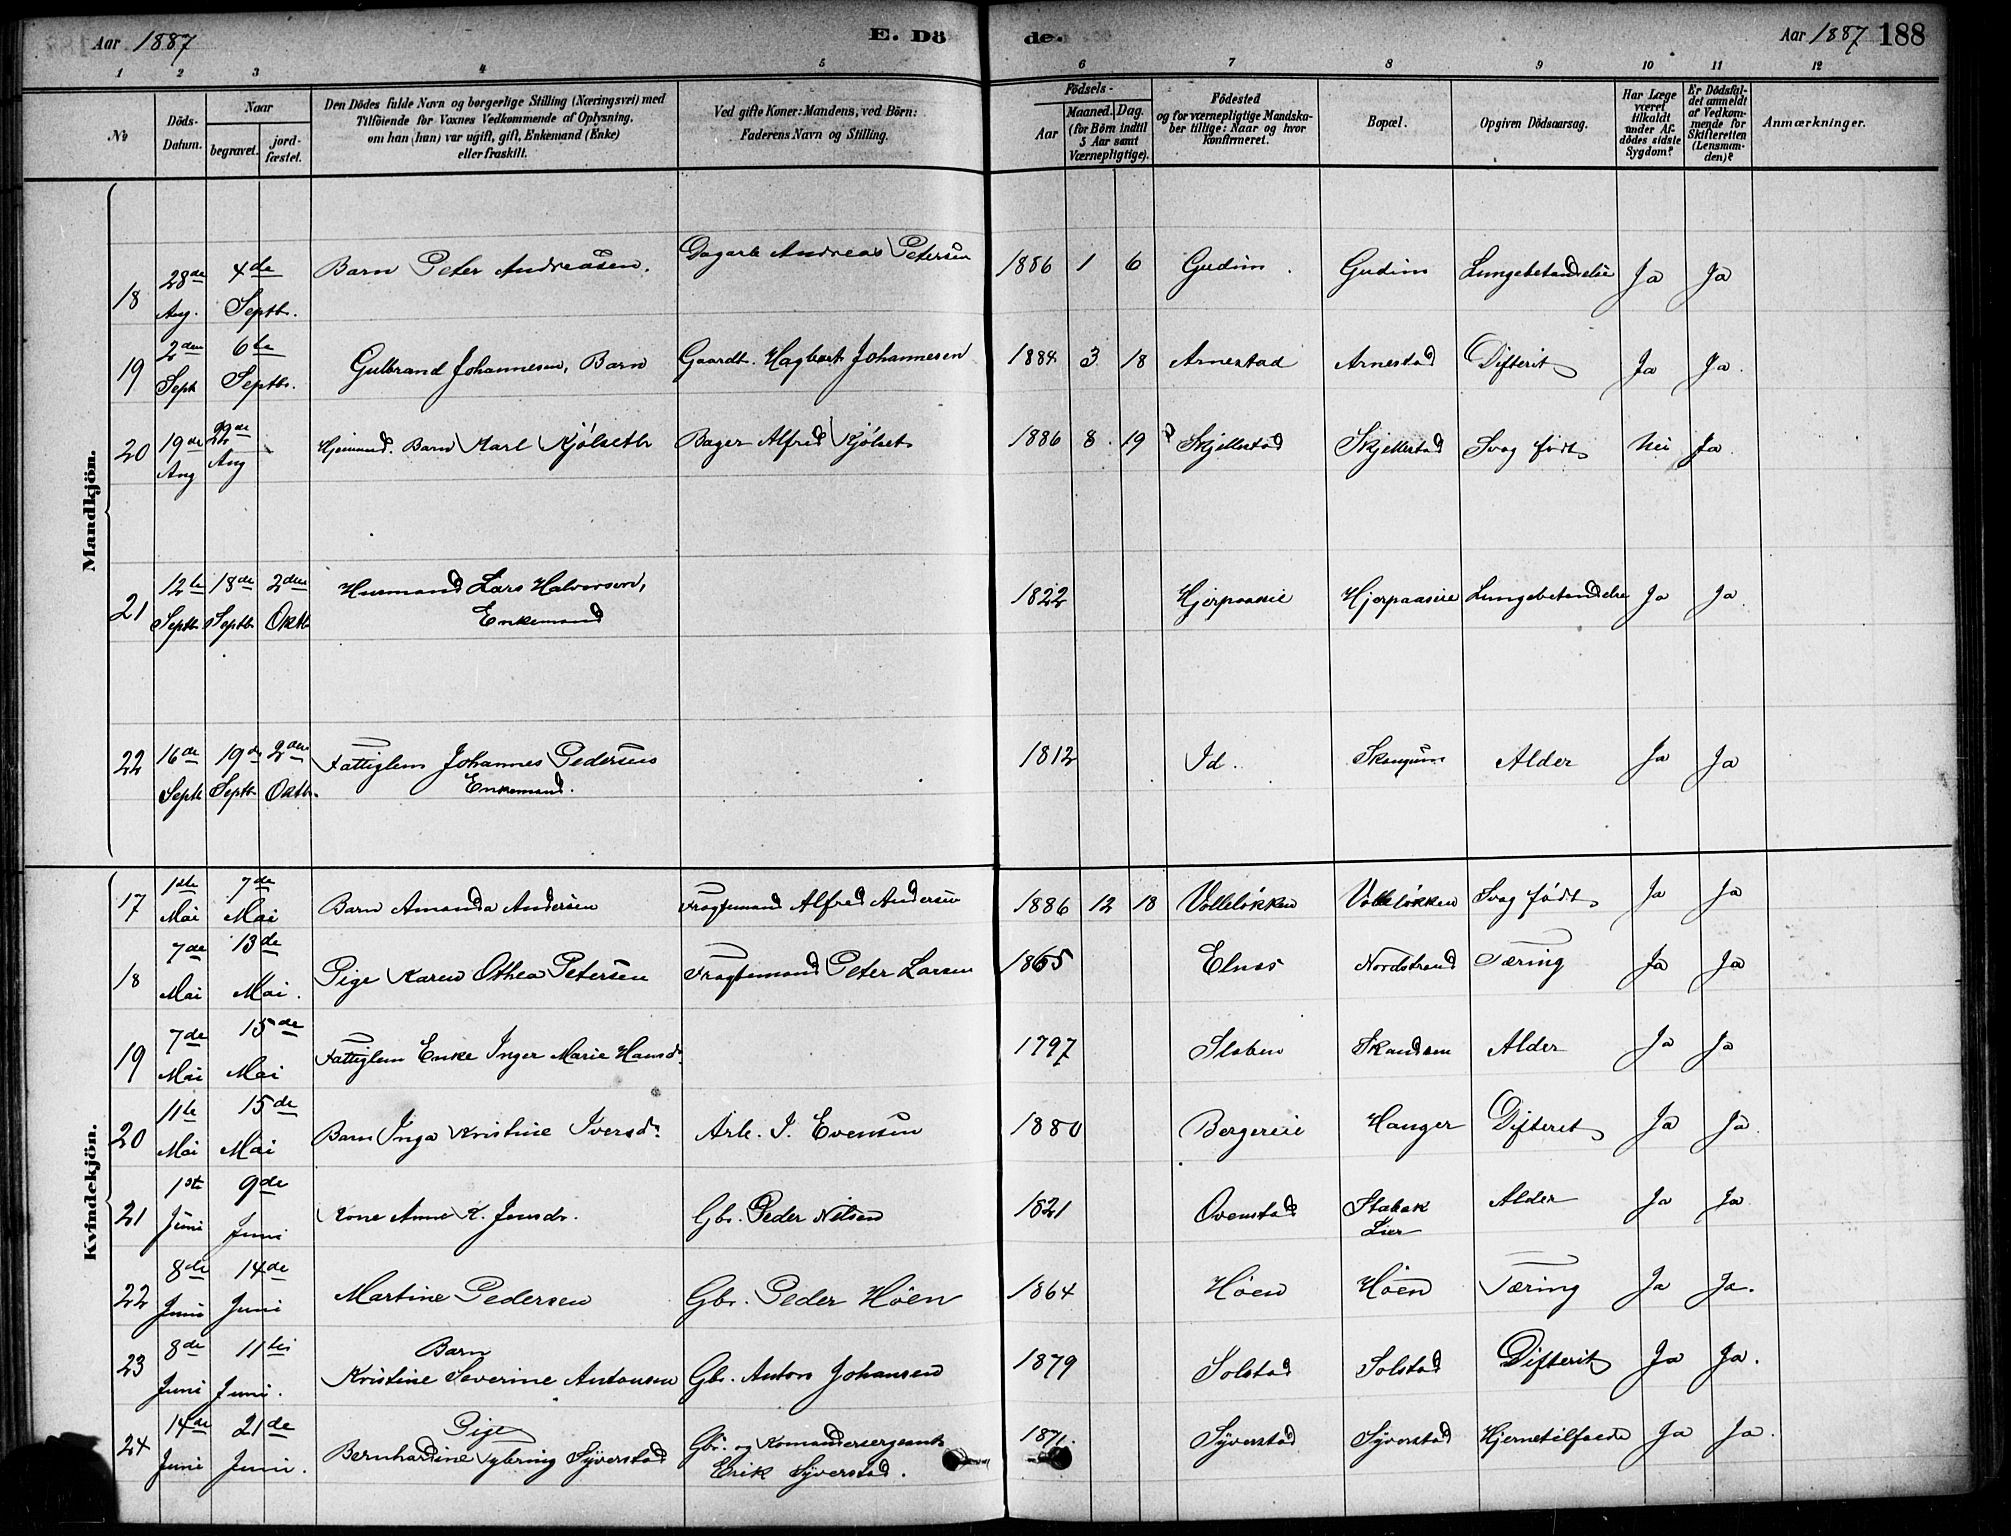 Aar 1887 E. Dö de. Aar 1887 188
1 2 3 4 5 6 7 8 9 10 11 12
No
Döds-Datum.
Naar begravet. jordfæstet.
Den Dödes fulde Navn og borgerlige Stilling (Næringsvei) med Tilföiende for Voxnes Vedkommende af Oplysning, om han (hun) var ugift, gift, Enkemand (Enke) eller fraskilt.
Ved gifte Koner: Mandens, ved Börn: Faderens Navn og Stilling.
Födsels- Aar Maaned. Dag. (for Börn indtil 5 Aar samt Værnepligtige).
Födested og for værnepligtige Mandskaber tillige: Naar og hvor konfirmeret.
Bopæl.
Opgiven Dödsaarsag.
Har Læge været tilkaldt under Afdödes sidste Sygdom?
Er Dödsfaldet anmeldt af Vedkommende for Skifteretten (Lensmanden)?
Anmærkninger.
Mandkjön.
18 28de Aug. 4de Septb. Barn Peter Andreasen. Dagarb Andreas Petersen 1886 1 6 Gudim Gudim Lungebetændelse Ja Ja
19 2den Sept 6te Septb. Gulbrand Johannesen, Barn Gaardt. Hagbart Johannesen 1884 3 18 Arnestad Arnestad Difterit Ja Ja.
20 19de Aug Aug Hjemmed. Barn Karl Kjølseth Bager Alfred Kjølset 1886 8 19 Skjellestad Skjellestad Svag født Nei Ja.
21 12te Septb 18de Septb 2den Oktb Husmand Lars Halvorsen, Enkemand 1822 Hjerpaaseie Hjerpaaseie Lungebetændelse Ja Ja.
22 16de Septb 19de Septb 2den Oktb. Fattiglem Johannes Pedersen Enkemand. 1812 Id. Skaugum Alder Ja Ja
Kvindekjön.
17 1ste Mai 7de Mai Barn Amanda Andersen Fragtemand Alfred Andersen 1886 12 18 Volleløkken Volleløkken Svag født Ja Ja
18 7de Mai 13de Mai. Pige Karen Othea Petersen Fragtemand Peter Larsen 1865 Elnes Nordstrand Tæring Ja Ja
19 7de Mai 15de Mai Fattiglem Enke Inger Marie Hansd. 1797 Slaben Skandsen Alder Ja Ja
20 11te Mai 15de Mai Barn Inga Kristine Iversd. Arb. I. Evensen 1880 Bergereie Hanger Difterit Ja Ja
21 1ste Juni 9de Juni Kone Anne K. Jensdr. Gbr. Peder Nilsen 1821 Ovenstad Stabæk Lier Alder Ja Ja
22 8de Juni 14de Juni Martine Pedersen Gbr. Peder Höen 1864 Höen Höen Tæring Ja Ja.
23 8de Juni 11te Juni. Barn Kristine Severine Antonsen Gbr. Anton Johansen 1879 Solstad Solstad Difterit Ja Ja.
24 14de Juni 21de Juni. Pige Bernhardine Syverstad Gbr. og Komandersergeant Erik Syverstad. 1871. Syverstad Syverstad Hjernetilfælde Ja Ja.